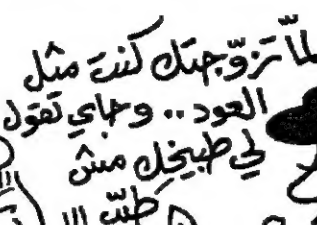 لمّا تزوّجتك كنت مثل
العود.. وجاي تقول
لي طبيخك مش
طيّب !!